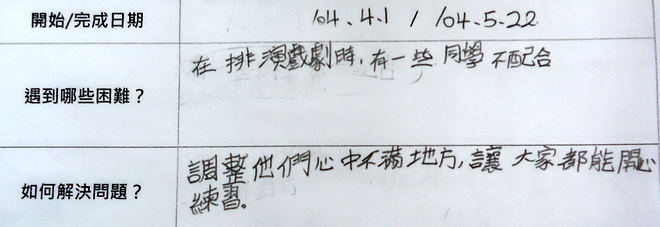 開始/完成日期 104.4.1 / 104.5.22
遇到哪些困難？ 在排演戲劇時，有一些同學不配合
如何解決問題？ 調整他們心中不滿地方，讓大家都能開心
練習。